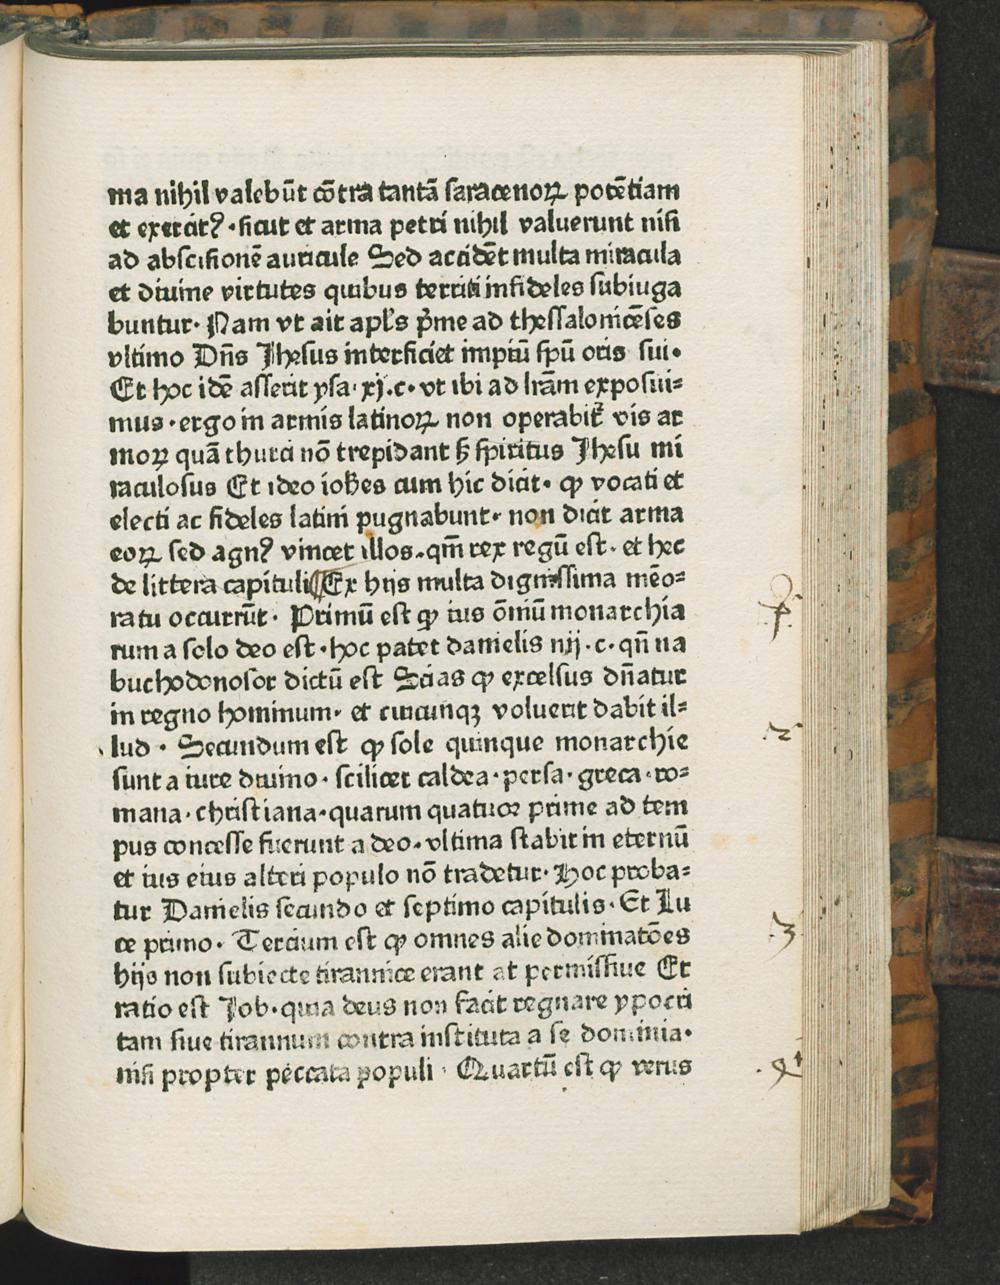 ma nihil valebūt cōtra tantā saracenoꝝ potētiam
et exercitꝰ · sicut et arma petri nihil valuerunt nisi
ad abscisionē auricule Sed accidēt multa miracula
et diuine virtutes quibus territi infideles subiuga
buntur· Nam vt ait apl's p̄me ad thessalonicēses
vltimo Dn̄s Jhesus interficiet impiū spū oris sui·
Et hoc idē asserit ysa· xj.c· vt ibi ad lr̄am exposui=
mus · ergo in armis latinoꝝ non operabit᷑ vis ar
moꝝ quā thurci nō trepidant ꝫ spiritus Jhesu mi
raculosus Et ideo ioh̄es cum hic dicit· ꝙ vocati et
electi ac fideles latini pugnabunt· non dicit arma
eoꝝ sed agnꝰ vincet illos·qm̄ rex regū est· et hec
de littera capituli ¶ Ex hijs multa dignissima mēo=
ratu occurrūt · Primū est ꝙ ius om̄iū monarchia
rum a solo deo est·hoc patet danielis iiij·c·qn̄ na
buchodonosor dictū est Scias ꝙ excelsus dn̄atur
in regno hominum· et cuicunqꝫ voluerit dabit il=
lud · Secundum est ꝙ sole quinque monarchie
sunt a iure diuino · scilicet caldea·persa·greca·ro=
mana·christiana·quarum quatuor prime ad tem
pus concesse fuerunt a deo·vltima stabit in eternū
et ius eius alteri populo nō tradetur·Hoc proba=
tur Danielis secundo et septimo capitulis·Et Lu
ce primo· Tercium est ꝙ omnes alie dominatōes
hijs non subiecte tirannice erant at permissiue Et
ratio est Job·quia deus non facit regnare ypocri
tam siue tirannum contra instituta a se dominia·
nisi propter peccata populi · Quartū est ꝙ verus
2
3
4